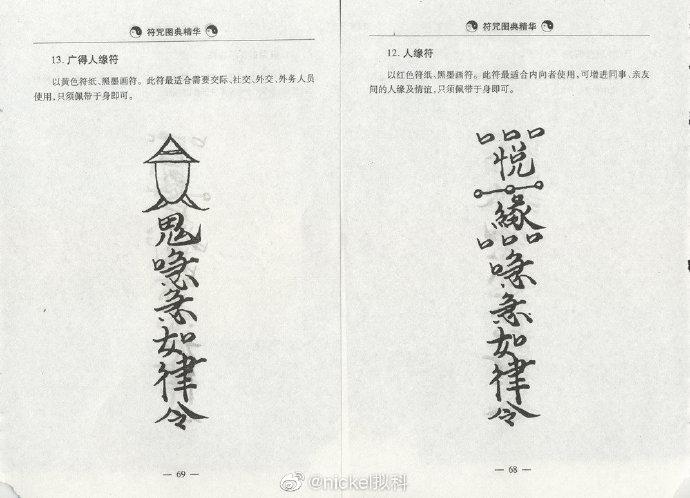 符咒图典精华
13. 广得人缘符
以黄色符纸、黑墨画符。此符最适合需要交际、社交、外交、外务人员
使用,只须佩带于身即可。
鬼
喼
急
如
律
令
— 69 —
符咒图典精华
12. 人缘符
以红色符纸、黑墨画符。此符最适合内向者使用,可增进同事、亲友
间的人缘及情谊,只须佩带于身即可。
口口口
悦
緣
口口口
喼
急
如
律
令
— 68 —
@nickel拟科